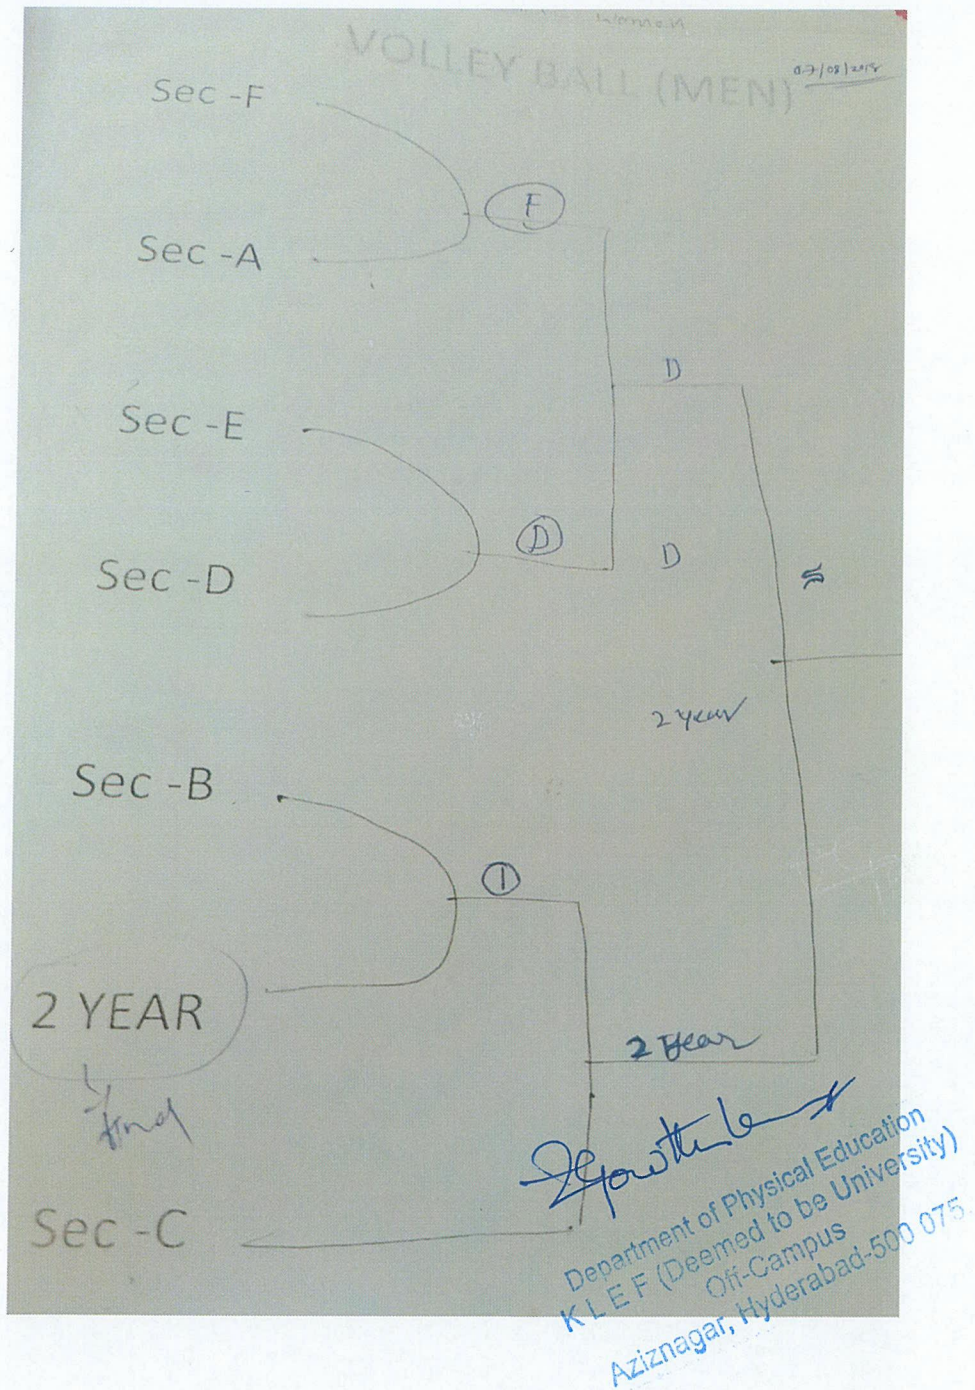 VOLLEY BALL (MEN)
07/08/2018
Sec -F
F
Sec -A
D
Sec -E
D
D
Sec -D
2 year
Sec -B
1
2 YEAR
2 Year
Sec -C
Department of Physical Education
K L E F (Deemed to be University)
Off-Campus
Aziznagar, Hyderabad-500 075